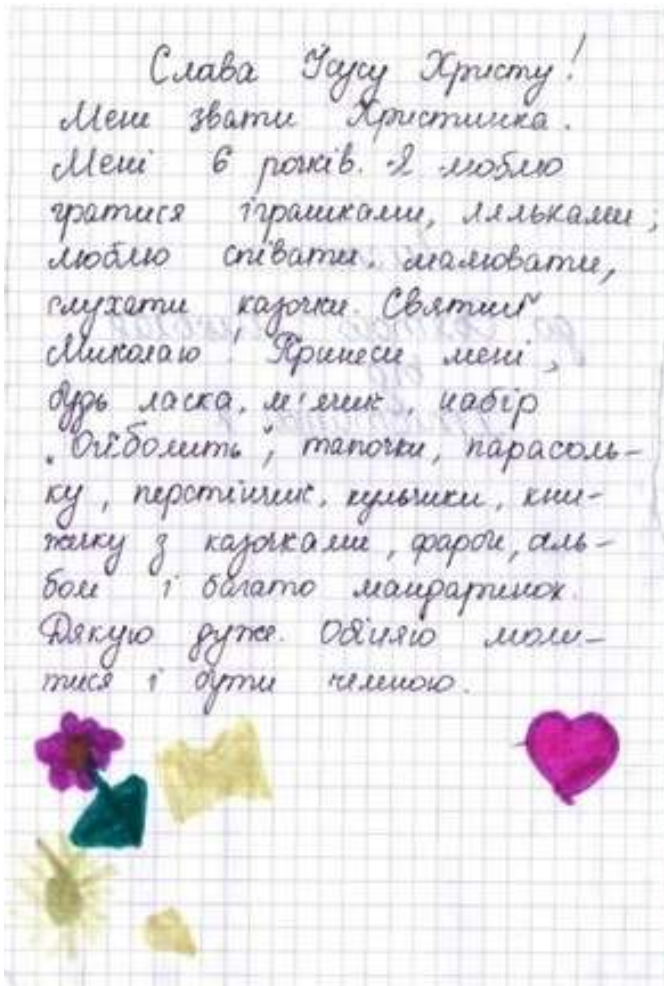 Слава Ісусу Христу!
Мені звати Христинка.
Мені 6 років. Я люблю
гратися іграшками, ляльками,
люблю співати, малювати,
слухати казочки. Святий
Миколаю! Принеси мені,
будь ласка, м'ячик, набір
"Ойболить", тапочки, парасоль-
ку, перстінчик, кульчики, кни-
жечку з казочками, фарби, аль-
бом і багато мандаринок.
Дякую дуже. Обіцяю моли-
тися і бути чемною.